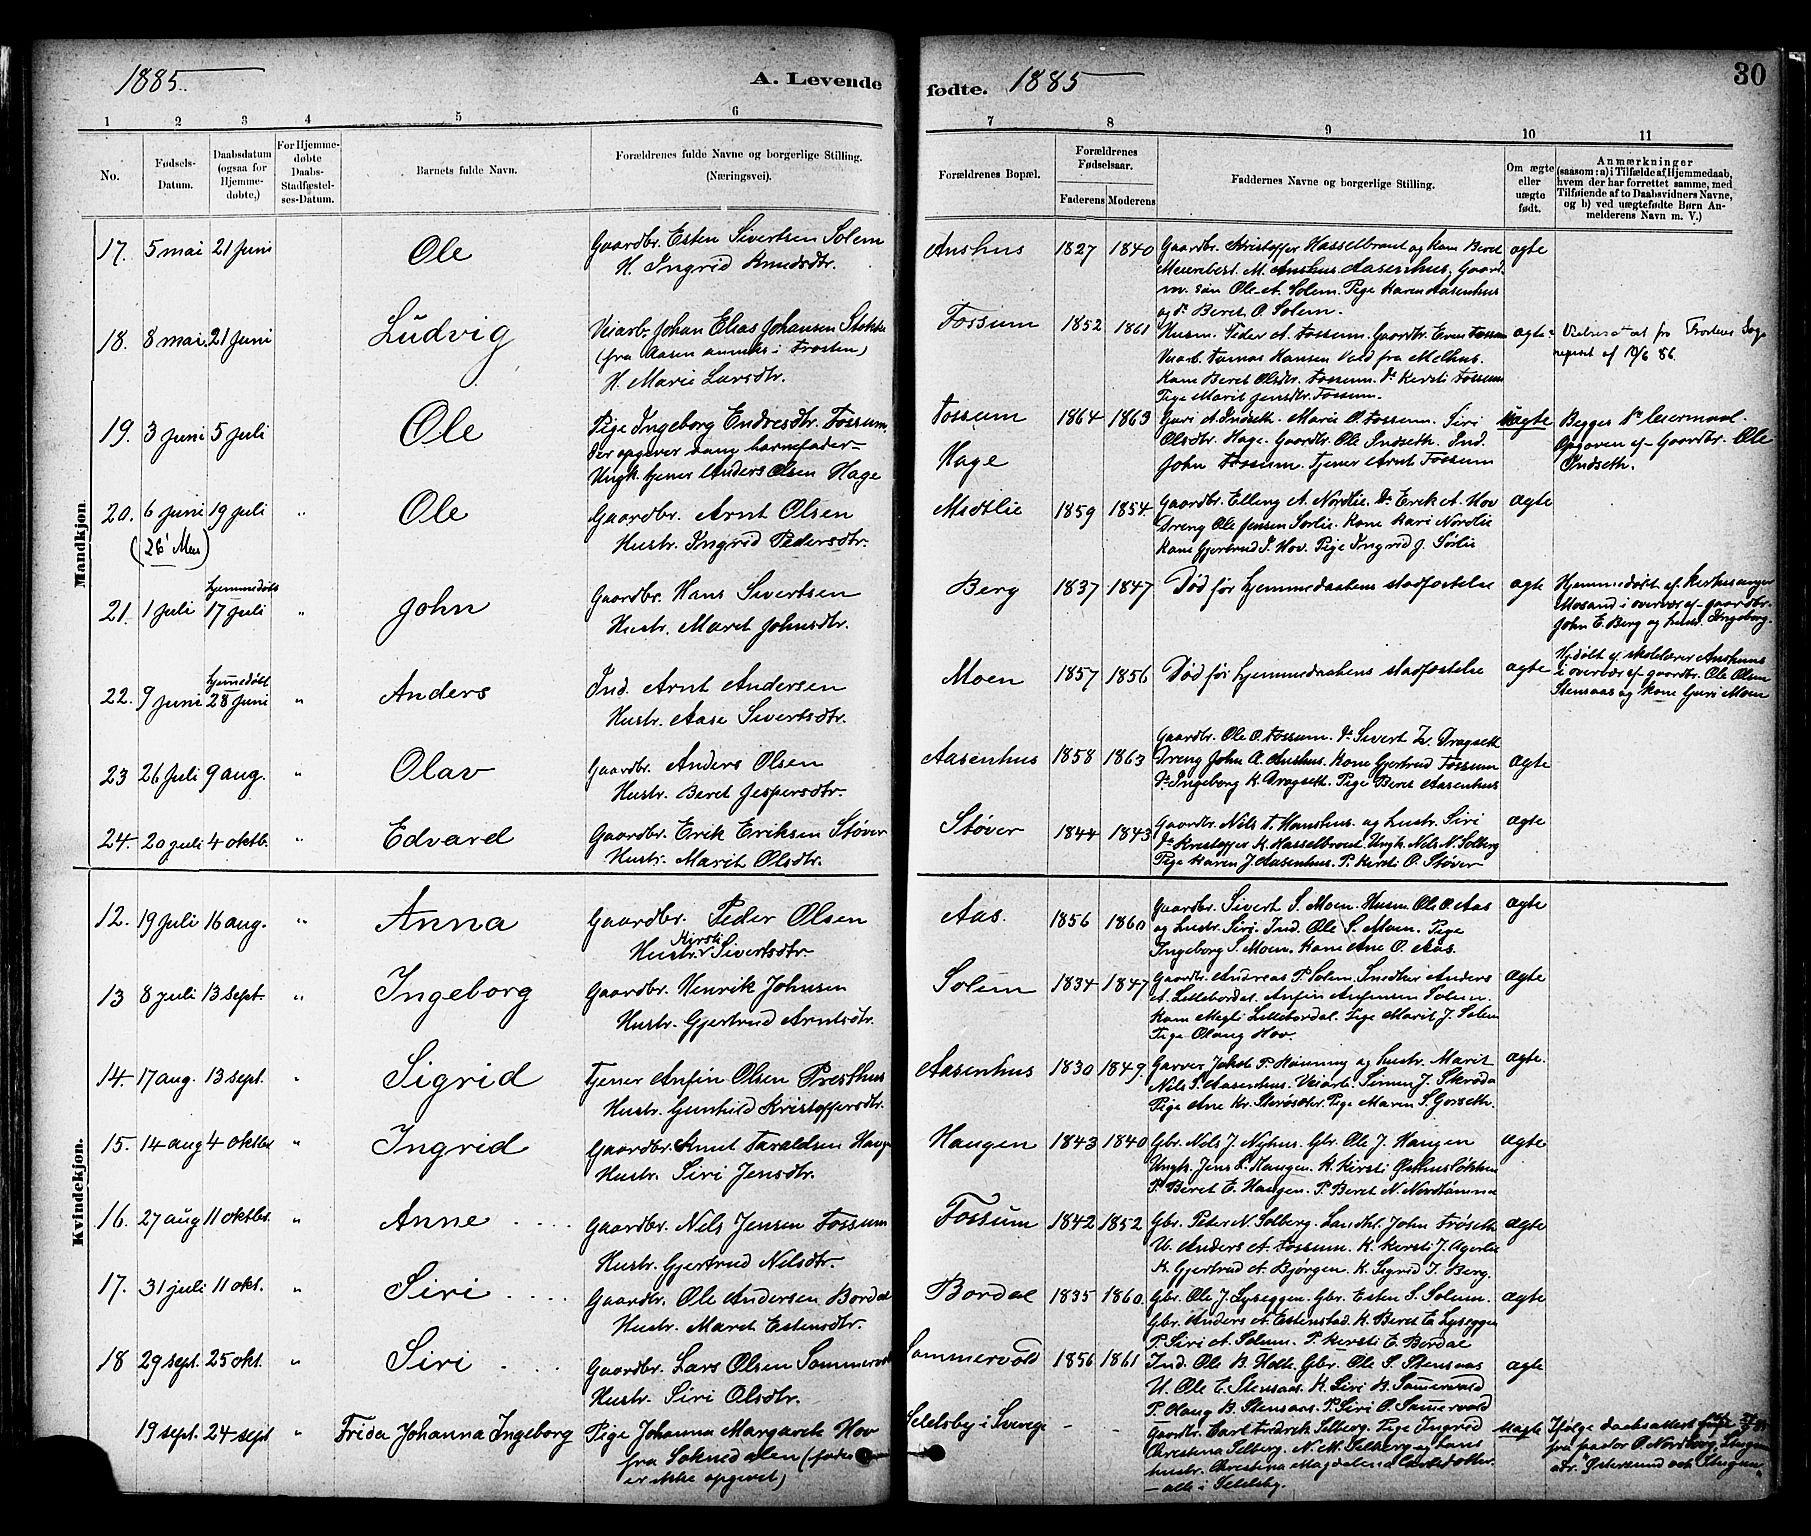 1885
A. Levende
fødte. 1885
30
1 2 3 4 5 6 7 8 9 10 11
No.
Fødsels-
Datum.
Daabsdatum
(ogsaa for
Hjemme-
døbte,)
For Hjemme-
døbte
Daabs-
Stadfæstel-
ses-Datum.
Barnets fulde Navn.
Forældrenes fulde Navne og borgerlige Stilling.
(Næringsvei).
Forældrenes Bopæl.
Forældrenes
Fødselsaar.
Faderens Moderens
Faddernes Navne og borgerlige Stilling.
Om ægte
eller
uægte
født.
Anmærkninger
(saasom: a) i Tilfælde af Hjemmedaab,
hvem der har forrettet samme, med
Tilføiende af to Daabsvidners Navne,
og b) ved uægtefødte Børn An-
melderens Navn m. V.)
Mandkjøn
17. 5 mai 21 Juni Ole Gaardbr. Esten Sivertsen Solem Anshus 1827 1840 Gaardbr. Kristoffer Hasselbrant og Kone Beret ægte
H. Ingrid Knudsdtr. Meieribest. M. Anshus Aasenhus, Gaard-
m. søn Ole A. Solem. Pige Karen Aasenhus
og do Beret O Solem.
18. 8 mai 21 Juni Ludvig Veiarb. Johan Elias Johansen Fossum 1852 1861 Husm. Peder A. Fossum. Gaardbr. Even Fossum ægte
(fra Aasen anneks i Frosten) Veiarb. Tomas Hansen Vold fra Melhus.
H. Marie Larsdtr. Kone Beret Olsdtr. Fossum. do Kersti Fossum
Pige Marit Jensdtr. Fossum.
19. 3 Juni 5 Juli Ole Pige Ingeborg Endresdtr. Fossum. Fossum 1864 1863 Guri A. Indseth. Marie O. Fossum. Siri uægte Begges 1ste Leiermaal.
Der opgiver som barnefader Hage Olsdtr. Hage. Gaardbr. Ole Indseth. Ind. Opgiven af Gaardbr. Ole
Ungk. tjener Anders Olsen Hage John Fossum. Tjener Arnt Fossum Indseth.
20. 6 Juni 19 Juli " Ole Gaardbr. Arnt Olsen Midtlie 1859 1854 Gaardbr. Elling A. Nordlie. Do Erik A. Hov ægte
(26 Mai) Hustr. Ingrid Pedersdtr. Dreng Ole Jensen Sørlie. Kone Kari Nordlie
Kone Gjertrud J. Hov. Pige Ingrid J. Sørlie
21. 1 Juli hjemmedøbt 17 Juli " John Gaardbr. Hans Sivertsen Berg 1837 1847 Død før hjemmedaabens stadfæstelse ægte Hjemmedøbt af Kirkesanger
Hustr. Maret Johnsdtr. Mosand i overvær af gaardbr.
John E. Berg og hustr. Ingeborg.
22. 9 Juni hjemmedøbt 28 Juni " Anders Ind. Arnt Andersen Moen 1857 1856 Død før hjemmedaabens stadfæstelse ægte Hj.døbt af skolelærer Anshus
Hustr. Aase Sivertsdtr. i overvær af gaardbr. Ole Olsen
Stensaas og Kone Guri Moen
23 26 Juli 9 aug. " Olav Gaardbr. Anders Olsen Aasenhus 1858 1863 Gaardbr. Ole O. Fossum. Do Sivert L. Dragseth ægte
Hustr. Beret Jespersdtr. Dreng John A. Anshus. Kone Gjertrud Fossum
Do Ingeborg K. Dragseth. Pige Beret Aasenhus
24. 20 Juli 4 oktb. " Edvard Gaardbr. Erik Eriksen Støver Støver 1844 1843 Gaardbr. Nils T. Hanshus. og hustr. Siri ægte
Hustr. Marit Olsdtr. Do Kristoffer K. Hasselbrant. Ungk. Nils N. Solberg
Pige Karen J. Aasenhus. P. Kersti O. Støver
Kvindekjøn.
12. 19 Juli 16 aug. " Anna Gaardbr. Peder Olsen Aas. 1856 1860 Gaardbr. Sivert S. Moen. Husm. Ole O. Aas ægte
Hustr. Kirsti Sivertsdtr. og hustr. Siri. Ind. Ole S. Moen. Pige
Ingeborg S. Moen. Kone Ane O. Aas.
13 8 Juli 13 sept. " Ingeborg Gaardbr. Henrik Johnsen Solem 1834 1847 Gaardbr. Andreas P. Solem. Snedker Anders ægte
Hustr. Gjertrud Arntsdtr. A. Lillebordal. Anfin Anfinsen Solem.
Kone Megli Lillebordal. Pige Marit J. Solem
Pige Olaug Hov.
14. 17 aug. 13 sept. " Sigrid Tjener Anfin Olsen Presthus Aasenhus 1830 1849 Garver Jakob P. Rønning og hustr. Marit ægte.
Hustr. Gunhild Kristoffersdtr. Nils S. Aasenhus. Veiarb. Simen J. Skrøda
Pige Ane Kr. Pige Maren S. Gorseth.
15. 14 aug 4 oktbr " Ingrid Gaardbr. Arnt Taraldsen Haugen Haugen 1843 1840 Gbr. Nils J. Nyhus. Gbr. Ole J. Haugen ægte
Hustr. Siri Jensdtr. Ungk. Jens L. Haugen. K. Kirsti Østhusløkken
P. Beret E. Haugen. P. Beret N. Nordtømme
16. 27 aug 11 oktbr. " Anne Gaardbr. Nils Jensen Fossum Fossum 1842 1852 Gbr. Peter N. Solberg. Landhl. John Frøseth ægte
Hustr. Gjertrud Nilsdtr. U. Anders A. Fossum. K. Kersti J. Agerlie
K. Gjertrud A. Bjørgen. K. Sigrid I. Berg.
17. 31 juli 11 okt. " Siri Gaardbr. Ole Andersen Bordal Bordal 1835 1860 Gbr. Ole J. Lyseggen. Gbr. Esten S. Solem. ægte
Hustr. Maret Estensdtr. Gbr. Anders A. Estenstad. K. Beret E. Lyseggen
P. Siri A. Solem. P. Kersti E. Bordal
18 29 sept. 25 okt. " Siri Gaardbr. Lars Olsen Sommervold Sommervold 1856 1861 Ind. Ole B. Holte. Gbr. Ole S. Stensaas ægte
Hustr. Siri Olsdtr. U. Ole E. Stensaas. K. Siri B. Sommervold
P. Haug B. Stensaas. P. Siri O. Sommervold
19 sept. 24 sept " Frida Johanna Ingeborg Pige Johanna Margarete Hov Selsby i Sverige - - Gaardbr. Carl Fredrik Selberg. Pige Ingrid uægte Ifølge daabsattest
fra Soknedalen (fader Christina Selberg. N. M. Selberg og hans fra pastor O. Nordborg,
er ikke opgivet) hustr. Christina Magdalena
- alle i Selsby.